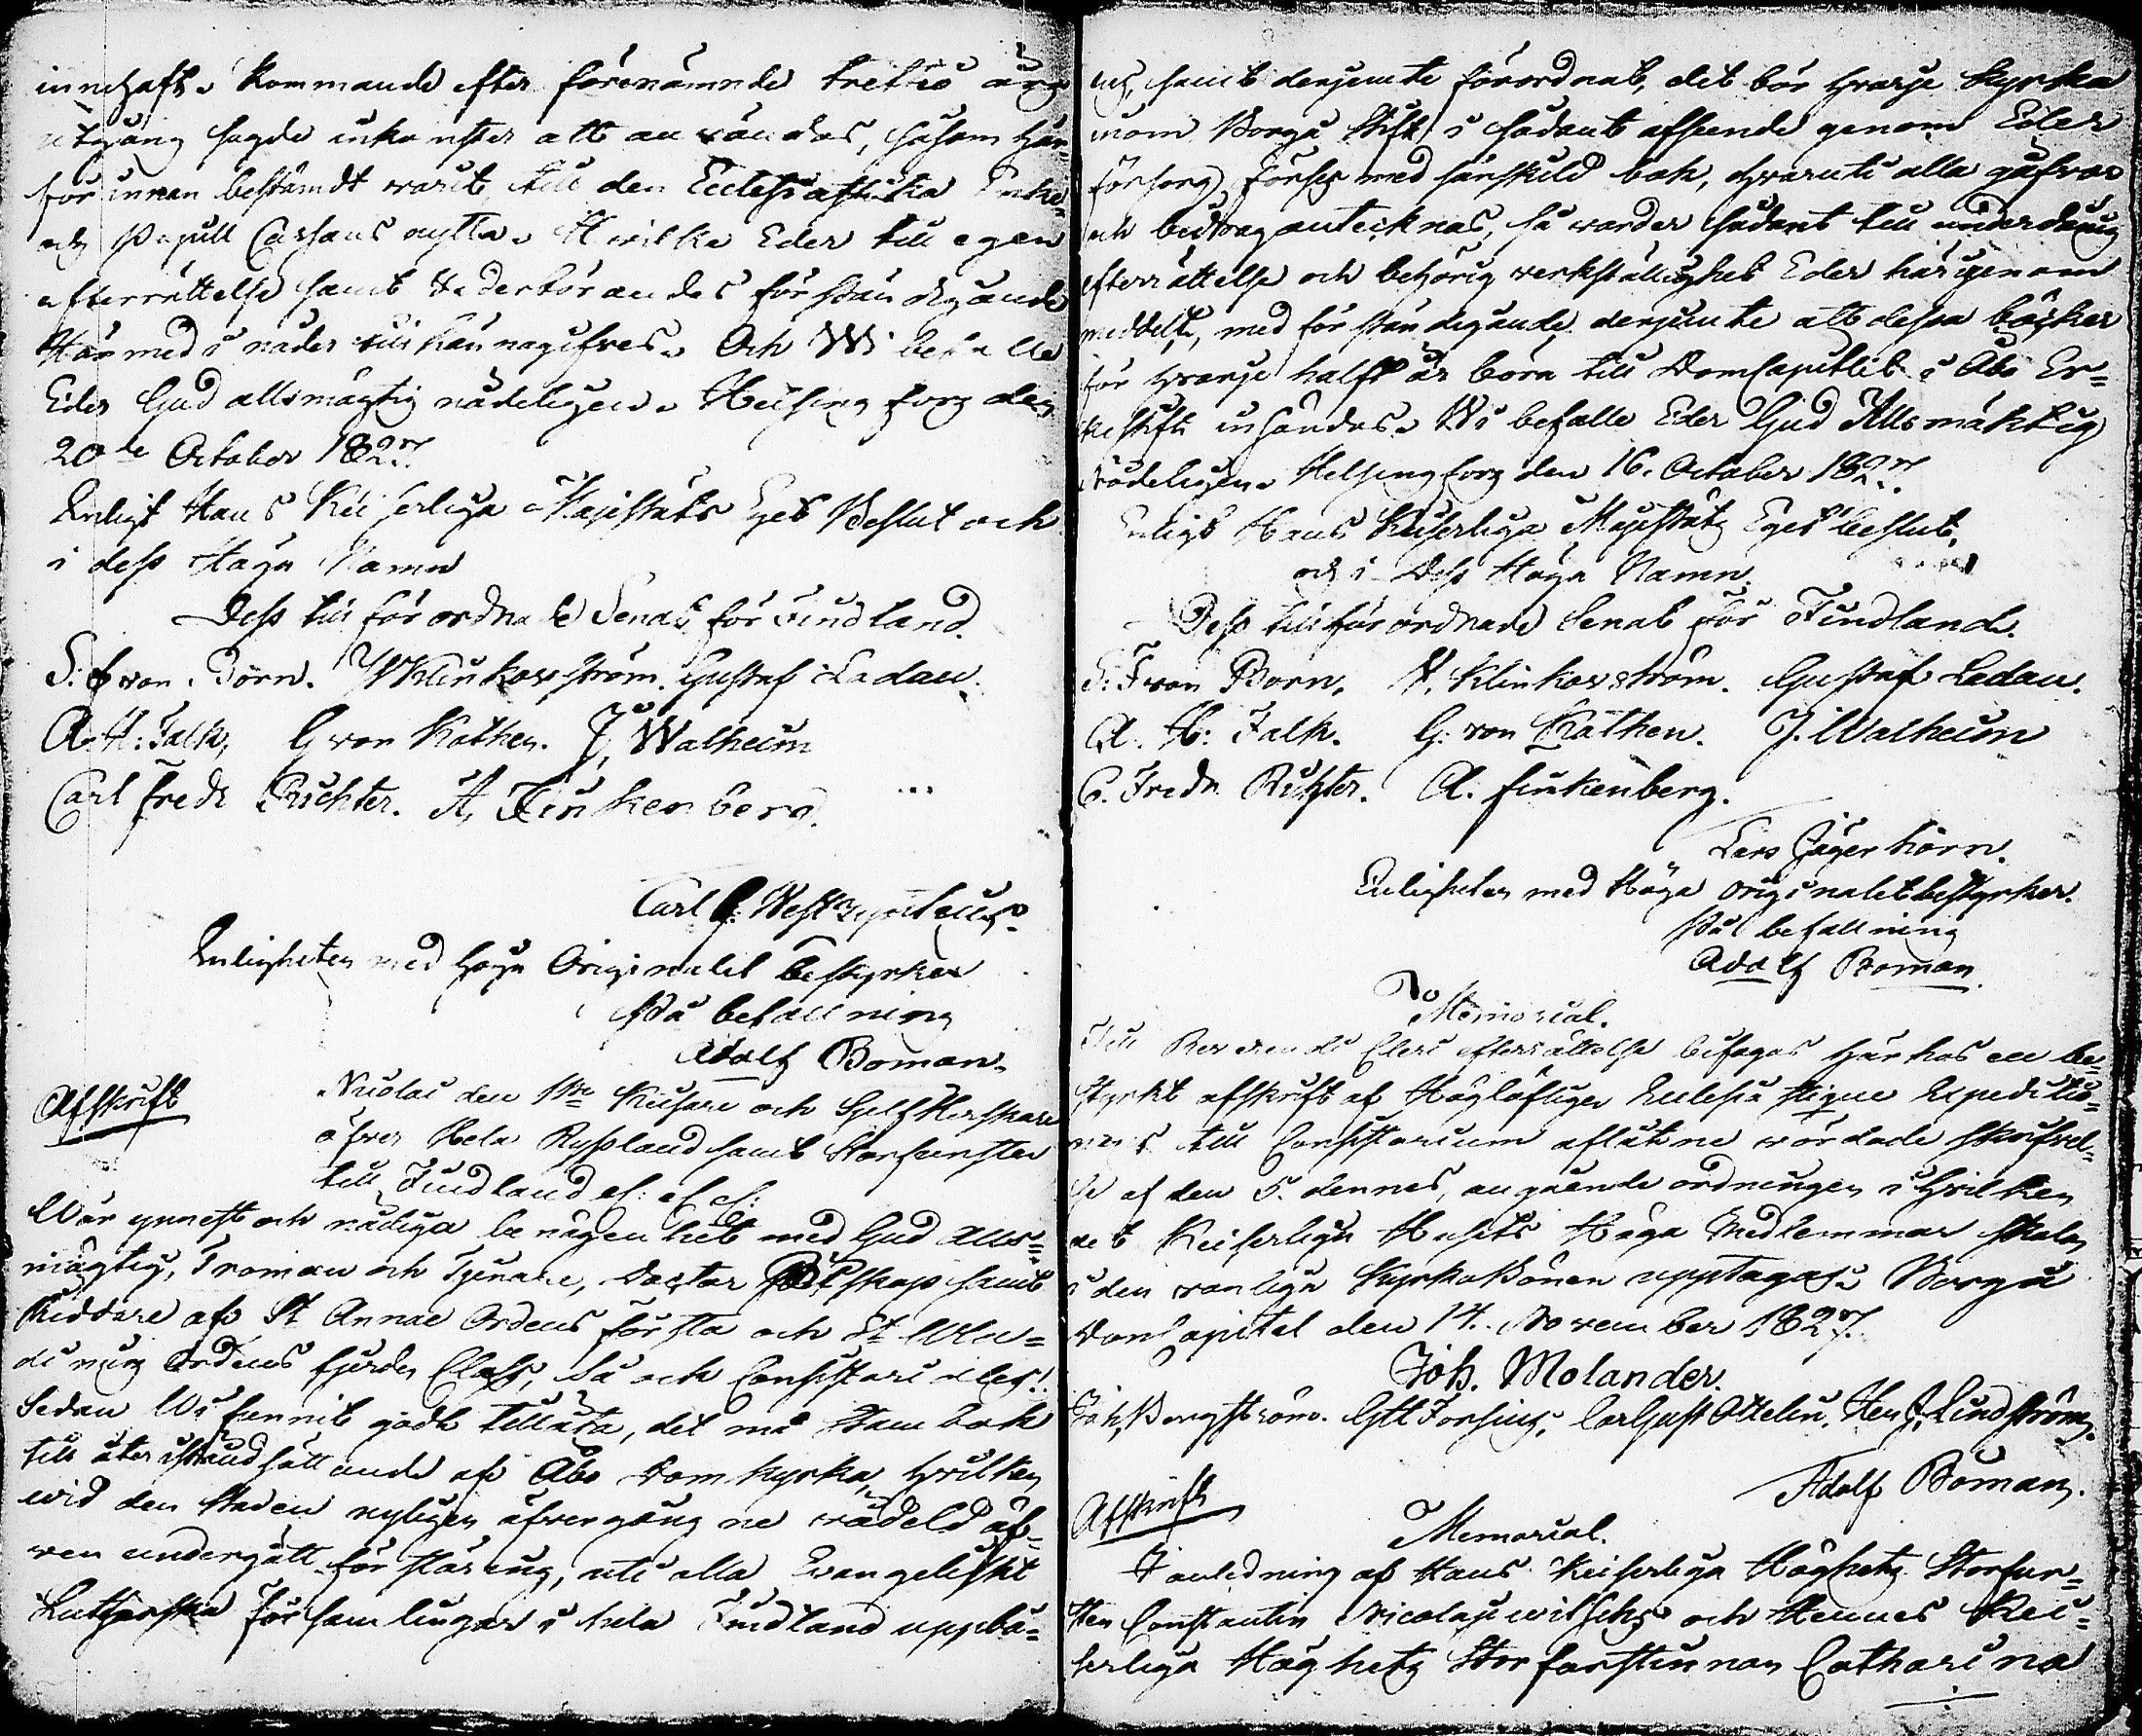 innehaft. kommande efter förenämnde trettio års
utgång sagde inkomster att användas, såsom här-
förinnan bestämdt warit till den Ecclesiastika Enke-
och Pupill Cassans nytta. Hwilket Eder till egen
efterrättelse samt wederbörandes förständigande
Härmed i nåder tillkännagifves. Och Wi befalle
Eder Gud allsmägtig nådeligen. Helsingfors den
20de October 1827.
Enligt Hans Keiserliga Majestäts Eget Beslut och
i dess Höga Namn
Dess tillförordnade Senat för Findland.
S. F. von Born. W Klinkowström. Gustaf Ladau.
A. H: Falk, G von Kothen. J, Walheim
Carl Fredr Richter. A, Finkenberg.
Carl G:
Enligheten med höga Originalet bestyrker
På befallning
Adolf Boman.
Afskrift
Nicolai den 1ste Keisare och Sjelfherskare
öfver Hela Ryssland samt Storfurste
till Findland etc: etc etc:
Wår ynnest och nådiga benägenhet med Gud Alls-
mägtig, Troman och Tjenare, Doctor Biskop samt
Riddare af St Annae Ordens första och St Wla-
dimirs Ordens fjerde Class, så och Consistoriales!
Sedan Wi funnit godt tillåta, det må Stambok
till återiståndsättande af Åbo Domkyrka, hwilken
wid den Staden nyligen öfvergångne wådeld äf-
ven undergått förstöring, uti alla Evangeliskt
Lutherska församlingar i hela Findland uppbä-
ras, samt derjemte förordnat, det bör hwarje kyrka
inom Borgå Stift i sådant afseende genom Eder
försorg, förses med särskild bok, hwaruti alla gåfvor
och bidrag antecknas, så warder sådant till underdånig
efterrättelse och behörig werkställighet Eder härigenom
meddelt, med förständigande derjemte att dessa böcker
för hwarje halft år böra till Domcapitlet i Åbo Er-
kestift insändas. Wi befalle Eder Gud Allsmäktig
Nådeligen. Helsingfors den 16. October 1827.
Enligt Hans Keiserliga Majestäts Eget beslut,
och i Dess Höga Namn.
Dess tillförordnade Senat för Findland.
S: F von Born. W. Klinkowström. Gustaf Ladau.
A. H: Falk. G: von Kothen. J. Walheim
C. Fredr Richter. A. Finkenberg.
Lars Jägerhorn.
Enligheten med Höga originalet bestyrker.
På befallning
Adolf Boman
Memorial.
Till Reverendi Cleri efterrättelse bifogas härhos en be-
styrkt afskrift af Höglofliga Ecclesiastique Expeditio-
nens till Consistorium aflåtne wördade skrifvel-
se af den 5. dennes, angående ordningen i hwilken
det Keiserliga Husets Höga Medlemmar skola
i den wanliga Kyrkobönen upptagas. Borgå
DomCapitel den 14. November 1827.
Joh. Molander.
Joh, Borgström. Gtt Forsius, Carl Gust Ottelin. Hen J. Lindström.
Adolf Boman.
Afskrift
Memorial.
I anledning af Hans Keiserliga Höghets Storfur-
sten Constantin Nicolajewitschs och Hennes Kei-
serliga Höghets Storfurstinnan Catharina